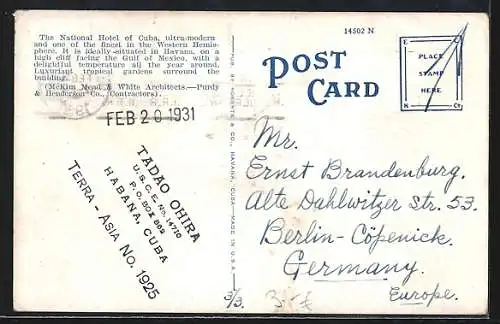 The National Hotel of Cuba, ultra-modern
and one of the finest in the Western Hemis-
phere. It is ideally situated in Havana, on
a high cliff facing the Gulf of Mexico, with a
delightful temperature all the year around.
Luxuriant tropical gardens surround the
building.
(McKim Mead & White Architects.—Purdy
& Henderson Co., Contractors).
FEB 20 1931
TADAO OHIRA
U.S.C.E. No. 14710
P.O. BOX 862
HABANA, CUBA
TERRA - ASIA NO. 1925
HAVANA, CUBA - MADE IN U.S.A.
14502 N
POST
CARD
PLACE
STAMP
HERE
Mr.
Ernst Brandenburg.
Alte Dahlwitzer Str. 53.
Berlin-Cöpenick.
Germany.
Europe.
3/3.